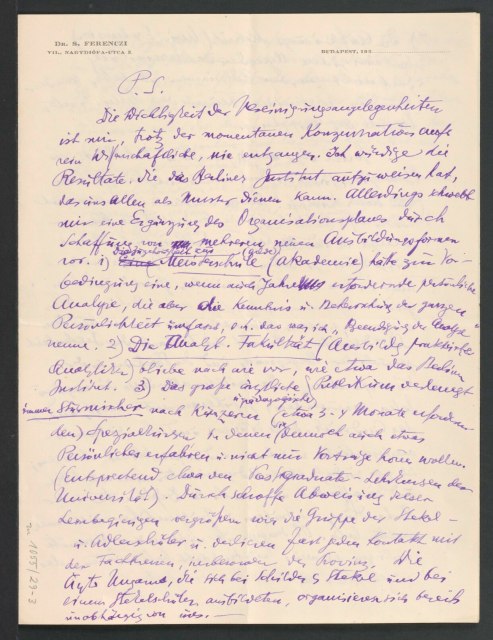 DR. S. FERENCZI
VII., NAGYDIÓFA-UTCA 3.
BUDAPEST, 192
P.S.
Die Wichtigkeit der Vereinigungsangelegenheiten
ist mir, trotz der momentanen Konzentration aufs
rein Wissenschaftliche, nie entgangen. Ich würdige die
Resultate, die das Berliner Institut aufzuweisen hat,
das uns allen als Muster dienen kann. Allerdings schwebt
mir eine Ergänzung des Organisationsplanes durch
Schaffung von mehreren neuen Ausbildungsformen
vor. 1) Meisterschule (Akademie) hätte zur Vor-
bedingung eine, wenn auch Jahre erfordernde persönliche
Analyse, die aber die Kenntnis u. Beherrschung der ganzen
Persönlichkeit umfasst, d.h. das was ich „Beendigung der Analyse"
nenne. 2) Die Analyt. Fakultät (Ausbildg praktischer
Analytiker) bliebe nach wie vor, wie etwa das Berliner
Institut. 3) Das große ärztliche u. pädagogische Publikum verlangt
immer stürmischer nach kürzeren (etwa 3-4 Monate erfordern-
den) Spezialkursen in denen sie dennoch auch etwas
Persönliches erfahren u. nicht nur Vorträge hören wollen
(Entsprechend etwa den Postgraduate-Lehrkursen der
Universität). Durch schroffe Abweisung dieser
Lernbegierigen vergrößern wir die Gruppe der Stekel-
u. Adlerschüler u. verlieren fast jeden Kontakt mit
den Fachkreisen, insbesondere der Provinz. Die
Ärzte Ungarns, die sich bei Schilder, Stekel und bei
einem Stekelschüler ausbildeten, organisieren sich bereits
unabhängig von uns. —